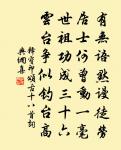 有無語默謾徒勞
居士何曾動一毫
世祖功成三十六
雲台爭似釣台高
釋宵卭頌古十八首詞
典網集